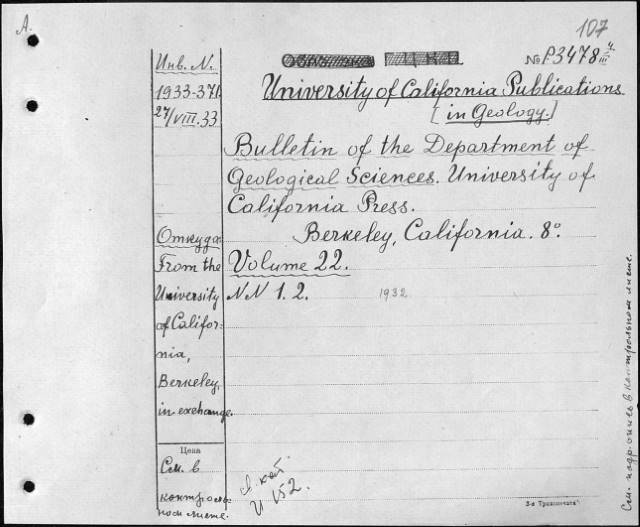 A.
107
Инв. N.
№ P3478 4/III
1933-371
University of California Publications
27/VIII.33
[in Geology.]
Bulletin of the Department of
Geological Sciences. University of
California Press.
Откуда
Berkeley, California. 8°.
From the
Volume 22.
University
NN 1. 2.
1932
of Califor-
nia,
Berkeley,
in exchange.
Цена
См. в
контроль-
ном листе.
См. подпись в контрольном листе.